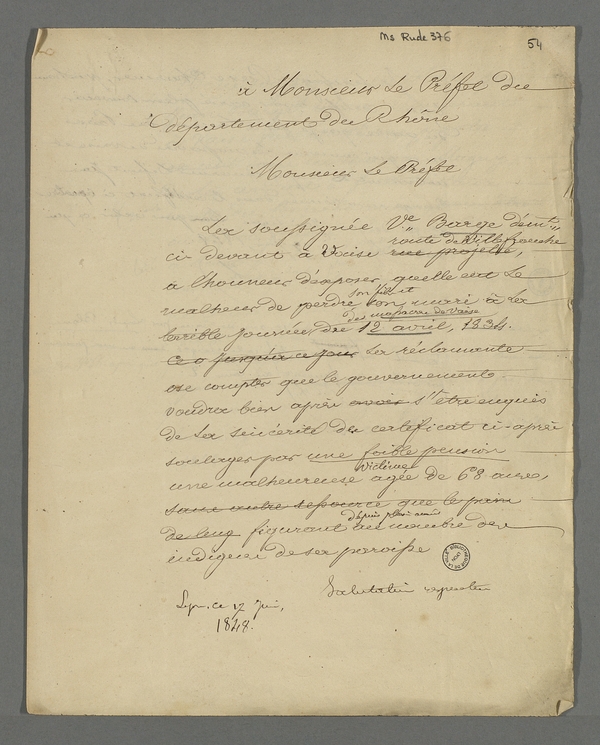 Ms Rude 376
54
à Monsieur Le Préfet du
département du Rhône
Monsieur Le Préfet
La soussignée Ve Barge demt
route de Villefranche
ci devant à Vaise rue projetée,
a l'honneur d'exposer, qu'elle eut Le
son fils et
malheur de perdre son mari à la
des massacres de Vaise
terrible journée du 12 avril, 1834.
ce o jusqu'a ce jour La réclamante
ose compter que le gouvernement
voudra bien après avoir s'etre enquis
de La sincérité du certificat ci-après
soulager par une foible pension
victime
une malheureuse agée de 68 ans,
sans autre ressource que le pain
depuis plusieurs
de leur figurant au nombre des
indigens de sa paroisse
Salutation
Lyon, ce 17 Juin,
1848.
BIBLIOTHEQUE DE LA VILLE LYON